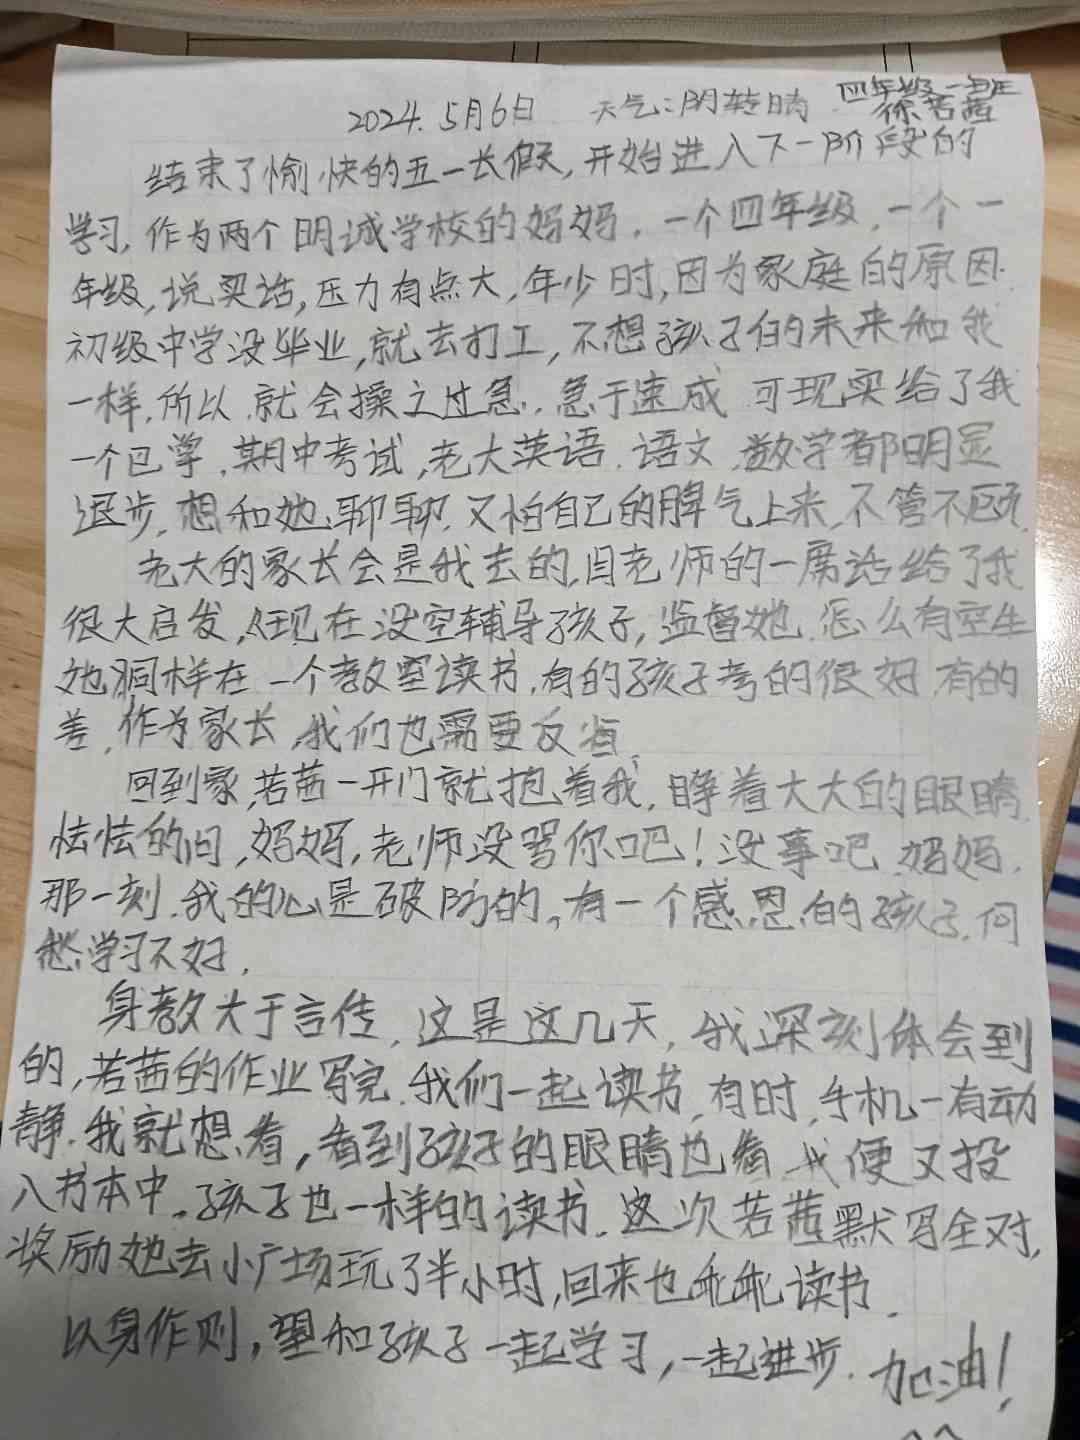 2024. 5月6日 天气:阴转晴 四年级一班
徐若茜
结束了愉快的五一长假天,开始进入下一阶段的
学习,作为两个明诚学校的妈妈,一个四年级,一个一
年级,说实话,压力有点大,年少时,因为家庭的原因.
初级中学没毕业,就去打工,不想孩子的未来和我
一样,所以,就会操之过急,急于速成 可现实给了我
一个巴掌,期中考试,老大英语.语文.数学都明显
退步,想和她聊聊,又怕自己的脾气上来,不管不顾.
老大的家长会是我去的,吕老师的一席话给了我
很大启发,现在没空辅导孩子,监督她.怎么有空生
她,同样在一个教室读书,有的孩子考的很好,有的
差,作为家长,我们也需要反省,
回到家,若茜一开门就抱着我,睁着大大的眼睛,
怯怯的问,妈妈,老师没骂你吧!没事吧,妈妈,
那一刻,我的心是破防的。有一个感恩的孩子,何
愁学习不好.
身教大于言传,这是这几天,我深刻体会到
的,若茜的作业写完,我们一起读书,有时,手机一有动
静,我就想看,看到孩子的眼睛也看,我便又投
入书本中。孩子也一样的读书,这次若茜默写全对,
奖励她去小广场玩了半小时,回来也乖乖读书.
以身作则,望和孩子一起学习,一起进步.加油!
^^